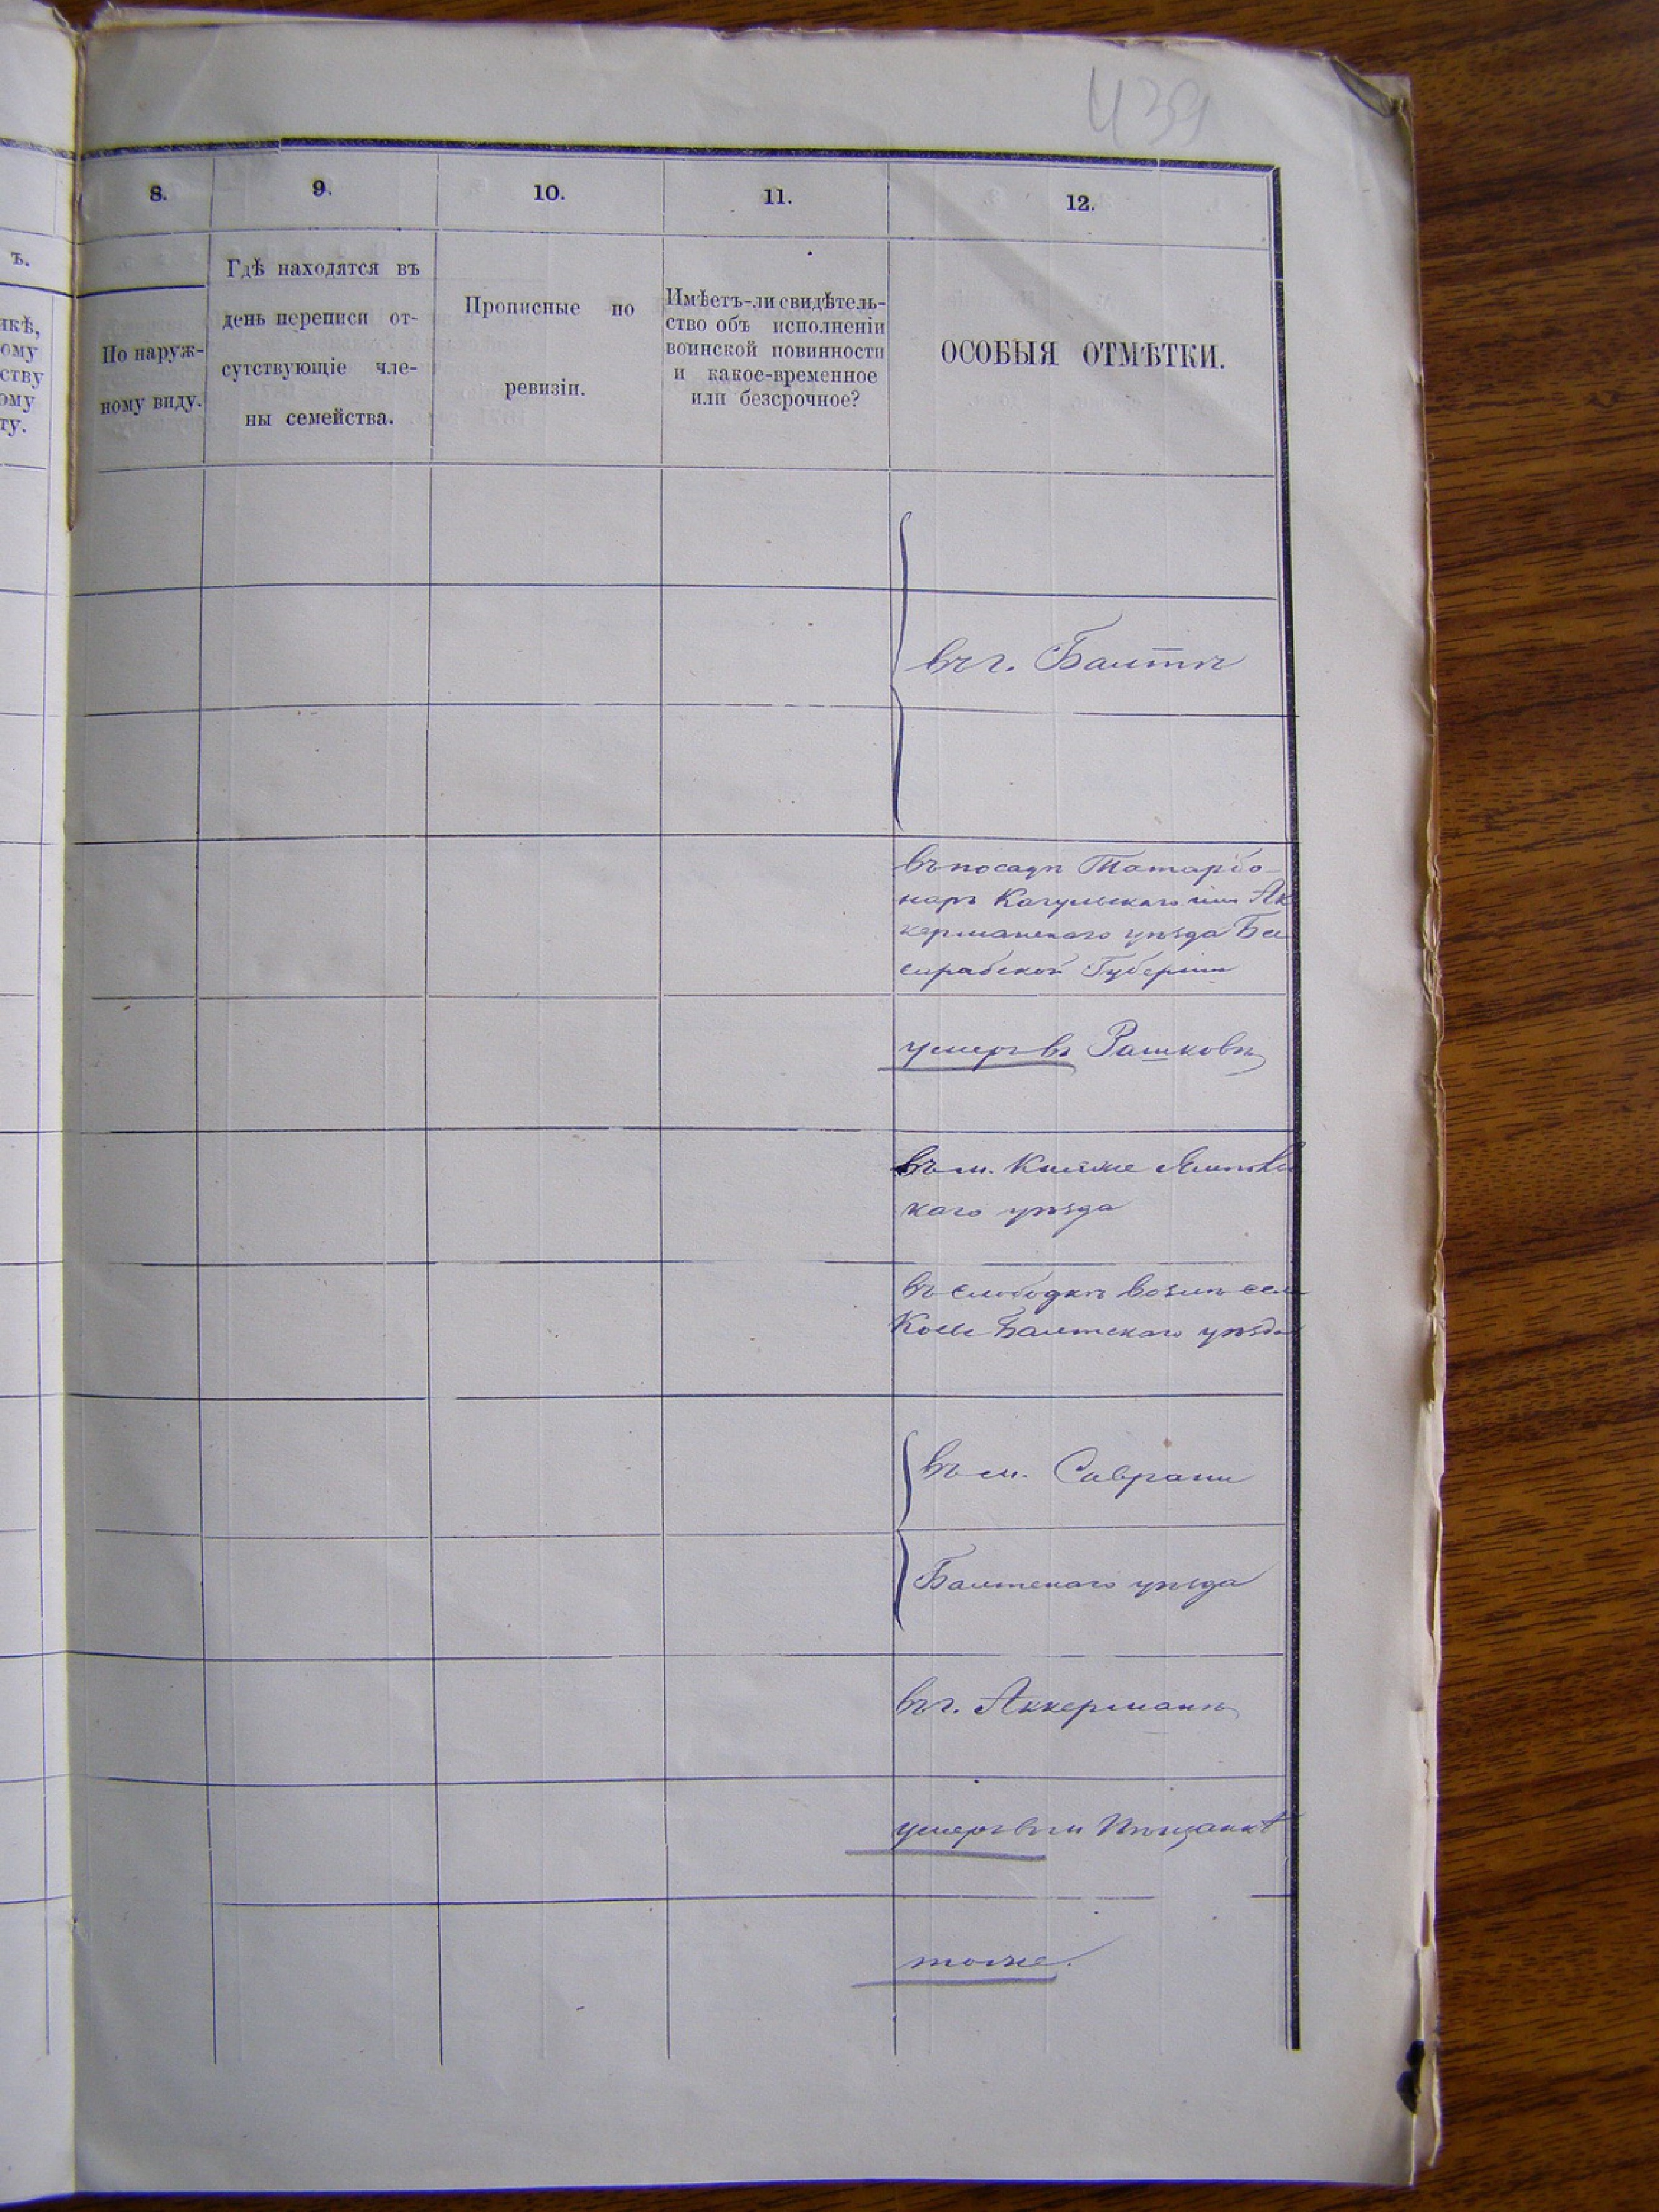 439
8.
9.
10.
11.
12.
ъ.
нкѣ,
ому
ству
ому
ту.
По наруж-
ному виду.
Гдѣ находятся въ
день переписи от-
сутствующіе чле-
ны семейства.
Прописные по
ревизіи.
Имѣетъ-ли свидѣтель-
ство объ исполненіи
воинской повинности
и какое-временное
или безсрочное?
ОСОБЫЯ ОТМѢТКИ.
въ г. Балтѣ
въ посадѣ Татарбо-
нарѣ Кагульскаго или Ак
керманскаго уѣзда Бес
сарабской Губерніи
умеръ въ Рашковѣ
въ м.
каго уѣзда
въ слободкѣ
Балтскаго уѣзда
въ м. Саврани
Балтскаго уѣзда
въ г. Аккерманѣ
умеръ въ м Пѣщанкѣ
тоже.